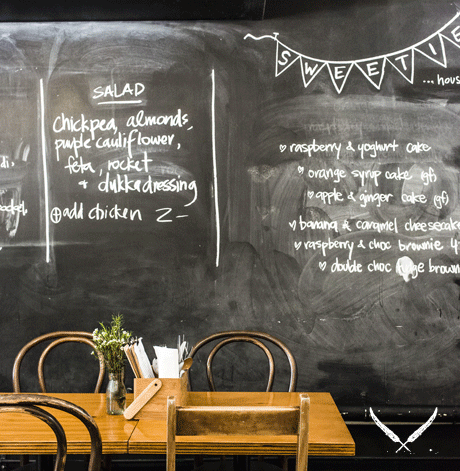 SALAD
Chickpea, almonds,
purple cauliflower,
feta, rocket
+ dukka dressing
⊕add chicken 2-
SWEETIE
...hous
♥ raspberry & yoghurt cake
♥ orange syrup cake (gf)
♥ apple & ginger cake (gf)
♥ banana & caramel cheesecake
♥ raspberry & choc brownie 4
♥ double choc fudge brown